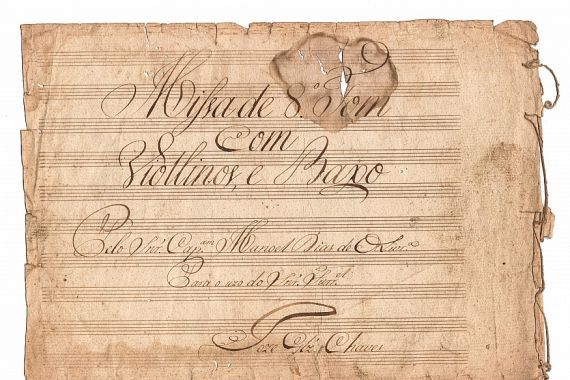 Missa de 8.º Tom
Com
Viollinos, e Baxo
Pelo Snr. Cap.am Manoel Dias de Olivr.a
Para o uzo do Snr.
Joze Chaves